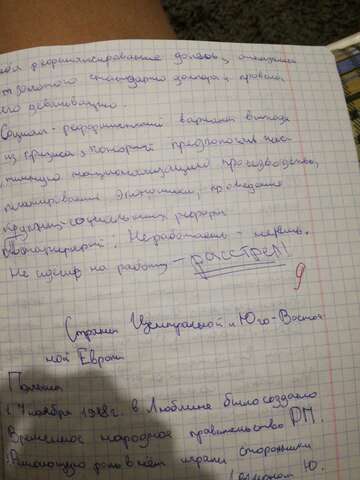 ния рефинансирование долгов, отменил
золотого стандарта доллара и провели
его девальвацию.
Социал-реформистский вариант выхода
из кризиса, который предполагал час
тичную национализацию производства,
планирование экономики, проведение
крупных социальных реформ
Не работаешь -
Не идёшь на работу - расстрел!
9
Страны Центральной и Юго-Восточ
ной Европы
Польша
7 ноября 1918г. в Люблине было создано
Временное народное правительство РП.
Решающую роль в нём играли сторонники
Ю.